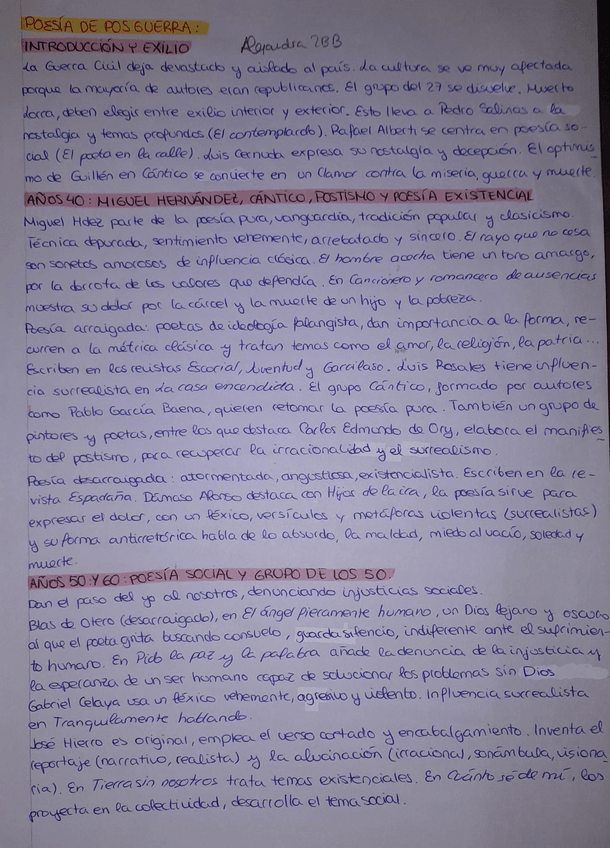 POESÍA DE POSGUERRA:
INTRODUCCIÓN Y EXILIO Alejandra 2BB
La Guerra Civil deja devastado y aislado al país. La cultura se ve muy afectada
porque la mayoría de autores eran republicanos. El grupo del 27 se disuelve. Muerto
Lorca, deben elegir entre exilio interior y exterior. Esto lleva a Pedro Salinas a la
nostalgia y temas profundos (El contemplardo). Rafael Alberti se centra en poesía so-
cial (El poeta en la calle). Luis Cernuda expresa su nostalgia y decepción. El optimis-
mo de Guillén en Cántico se convierte en un Clamor contra la miseria, guerra y muerte.
AÑOS 40: MIGUEL HERNÁNDEZ, CÁNTICO, POSTISMO Y POESÍA EXISTENCIAL
Miguel Hdez parte de la poesía pura, vanguardia, tradición popular y clasicismo.
Técnica depurada, sentimiento vehemente, arrebatado y sincero. El rayo que no cesa
son sonetos amorosos de influencia clásica. El hombre acecha tiene un tono amargo,
por la derrota de los valores que defendía. En Cancionero y romancero de ausencias
muestra su dolor por la cárcel y la muerte de un hijo y la pobreza.
Poesía arraigada: poetas de ideología falangista, dan importancia a la forma, re-
curren a la métrica clásica y tratan temas como el amor, la religión, la patria...
Escriben en las revistas Escorial, Juventud y Garcilaso. Luis Rosales tiene influen-
cia surrealista en La casa encendida. El grupo Cántico, formado por autores
como Pablo García Baena, quieren retomar la poesía pura. También un grupo de
pintores y poetas, entre los que destaca Carlos Edmundo de Ory, elabora el manifies-
to del postismo, para recuperar la irracionalidad y el surrealismo.
Poesía desarraigada: atormentada, angustiosa, existencialista. Escriben en la re-
vista Espadaña. Dámaso Alonso destaca con Hijos de la ira, la poesía sirve para
expresar el dolor, con un léxico, versículos y metáforas violentas (surrealistas)
y su forma antirretórica habla de lo absurdo, la maldad, miedo al vacío, soledad y
muerte.
AÑOS 50 Y 60: POESÍA SOCIAL Y GRUPO DE LOS 50.
Dan el paso del yo al nosotros, denunciando injusticias sociales.
Blas de Otero (desarraigado), en El ángel fieramente humano, un Dios lejano y oscuro
al que el poeta grita buscando consuelo, guarda silencio, indiferente ante el sufrimien-
to humano. En Pido la paz y la palabra añade la denuncia de la injusticia y
la esperanza de un ser humano capaz de solucionar los problemas sin Dios
Gabriel Celaya usa un léxico vehemente, agresivo y violento. Influencia surrealista
en Tranquilamente hablando.
José Hierro es original, emplea el verso cortado y encabalgamiento. Inventa el
reportaje (narrativo, realista) y la alucinación (irracional, sonámbula, visiona
ria). En Tierra sin nosotros trata temas existenciales. En Cuánto sé de mí, los
proyecta en la colectividad, desarrolla el tema social.